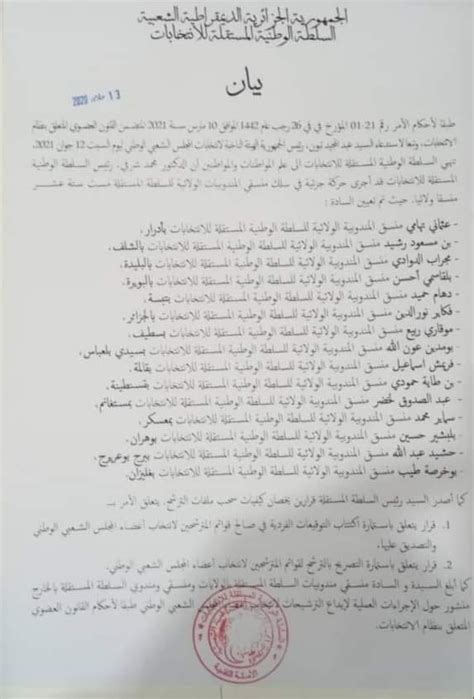 الجمهورية الجزائرية الديمقراطية الشعبية
السلطة الوطنية المستقلة للانتخابات
13 2020
بيان
طبقا لأحكام الأمر رقم 21-01 المؤرخ في في 26 رجب عام 1442 الموافق 10 مارس سنة 2021 المتضمن القانون العضوي المتعلق بنظام
الانتخابات، وتبعا لاستدعاء السيد عبد المجيد تبون، رئيس الجمهورية الهيئة الناخبة لانتخابات المجلس الشعبي الوطني ليوم السبت 12 جوان 2021،
تنهي السلطة الوطنية المستقلة للانتخابات الى علم المواطنات والمواطنين أن الدكتور محمد شرفي، رئيس السلطة الوطنية
المستقلة للانتخابات قد أجرى حركة جزئية في سلك منسقي المندوبيات الولائية للسلطة المستقلة مست ستة عشر
منسقا ولائيا، حيث تم تعيين السادة:
- عثماني تهامي منسق المندوبية الولائية للسلطة الوطنية المستقلة للانتخابات بأدرار،
- بن مسعود رشيد منسق المندوبية الولائية للسلطة الوطنية المستقلة للانتخابات بالشلف،
- مجراب الدوادي منسق المندوبية الولائية للسلطة الوطنية المستقلة للانتخابات بالبليدة،
- بلقاسمي أحسن منسق المندوبية الولائية للسلطة الوطنية المستقلة للانتخابات بالبويرة،
- دهام حميد منسق المندوبية الولائية للسلطة الوطنية المستقلة للانتخابات بتبسة،
- فكاير نورالدين منسق المندوبية الولائية للسلطة الوطنية المستقلة للانتخابات بالجزائر،
- موفاري ربيع منسق المندوبية الولائية للسلطة الوطنية المستقلة للانتخابات بسطيف،
- بومدين عون الله منسق المندوبية الولائية للسلطة الوطنية المستقلة للانتخابات بسيدي بلعباس،
- فريمش اسماعيل منسق المندوبية الولائية للسلطة الوطنية المستقلة للانتخابات بقالمة،
- بن طاية حمودي منسق المندوبية الولائية للسلطة الوطنية المستقلة للانتخابات بقسنطينة،
- عبد الصدوق لخضر منسق المندوبية الولائية للسلطة الوطنية المستقلة للانتخابات بمستغانم،
- سماير محمد منسق المندوبية الولائية للسلطة الوطنية المستقلة للانتخابات بمعسكر،
- بلبشير حسين منسق المندوبية الولائية للسلطة الوطنية المستقلة للانتخابات بوهران،
- حشيد عبد الله منسق المندوبية الولائية للسلطة الوطنية المستقلة للانتخابات ببرج بوعريريج،
- بوخرصة طيب منسق المندوبية الولائية للسلطة الوطنية المستقلة للانتخابات بغليزان،
كما أصدر السيد رئيس السلطة المستقلة قرارين يخصان كيفيات سحب ملفات الترشح. يتعلق الأمر بـ:
1. قرار يتعلق باستمارة اكتتاب التوقيعات الفردية في صالح قوائم المترشحين لانتخاب أعضاء المجلس الشعبي الوطني
والتصديق عليها،
2. قرار يتعلق باستمارة التصريح بالترشح لقوائم المترشحين لانتخاب أعضاء المجلس الشعبي الوطني.
كما أبلغ السيدة و السادة منسقي مندوبيات السلطة المستقلة بالولايات ومنسقي ومندوبي السلطة المستقلة بالخارج
منشور حول الإجراءات العملية لإيداع الترشيحات الشعبي الوطني طبقا لأحكام القانون العضوي
المتعلق بنظام الانتخابات.